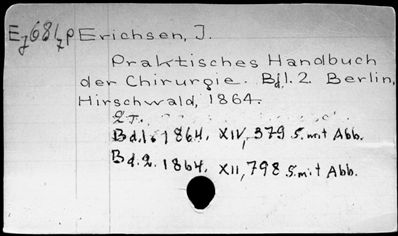 Ez68Lp Erichsen, J.
Praktisches Handbuch
der Chirurgie. Bd. 1. 2. Berlin,
Hirschwald, 1864.
2 T.
Bd. 1. 1864. XIV, 579 S. mit Abb.
Bd. 2. 1864. XII, 798 S. mit Abb.